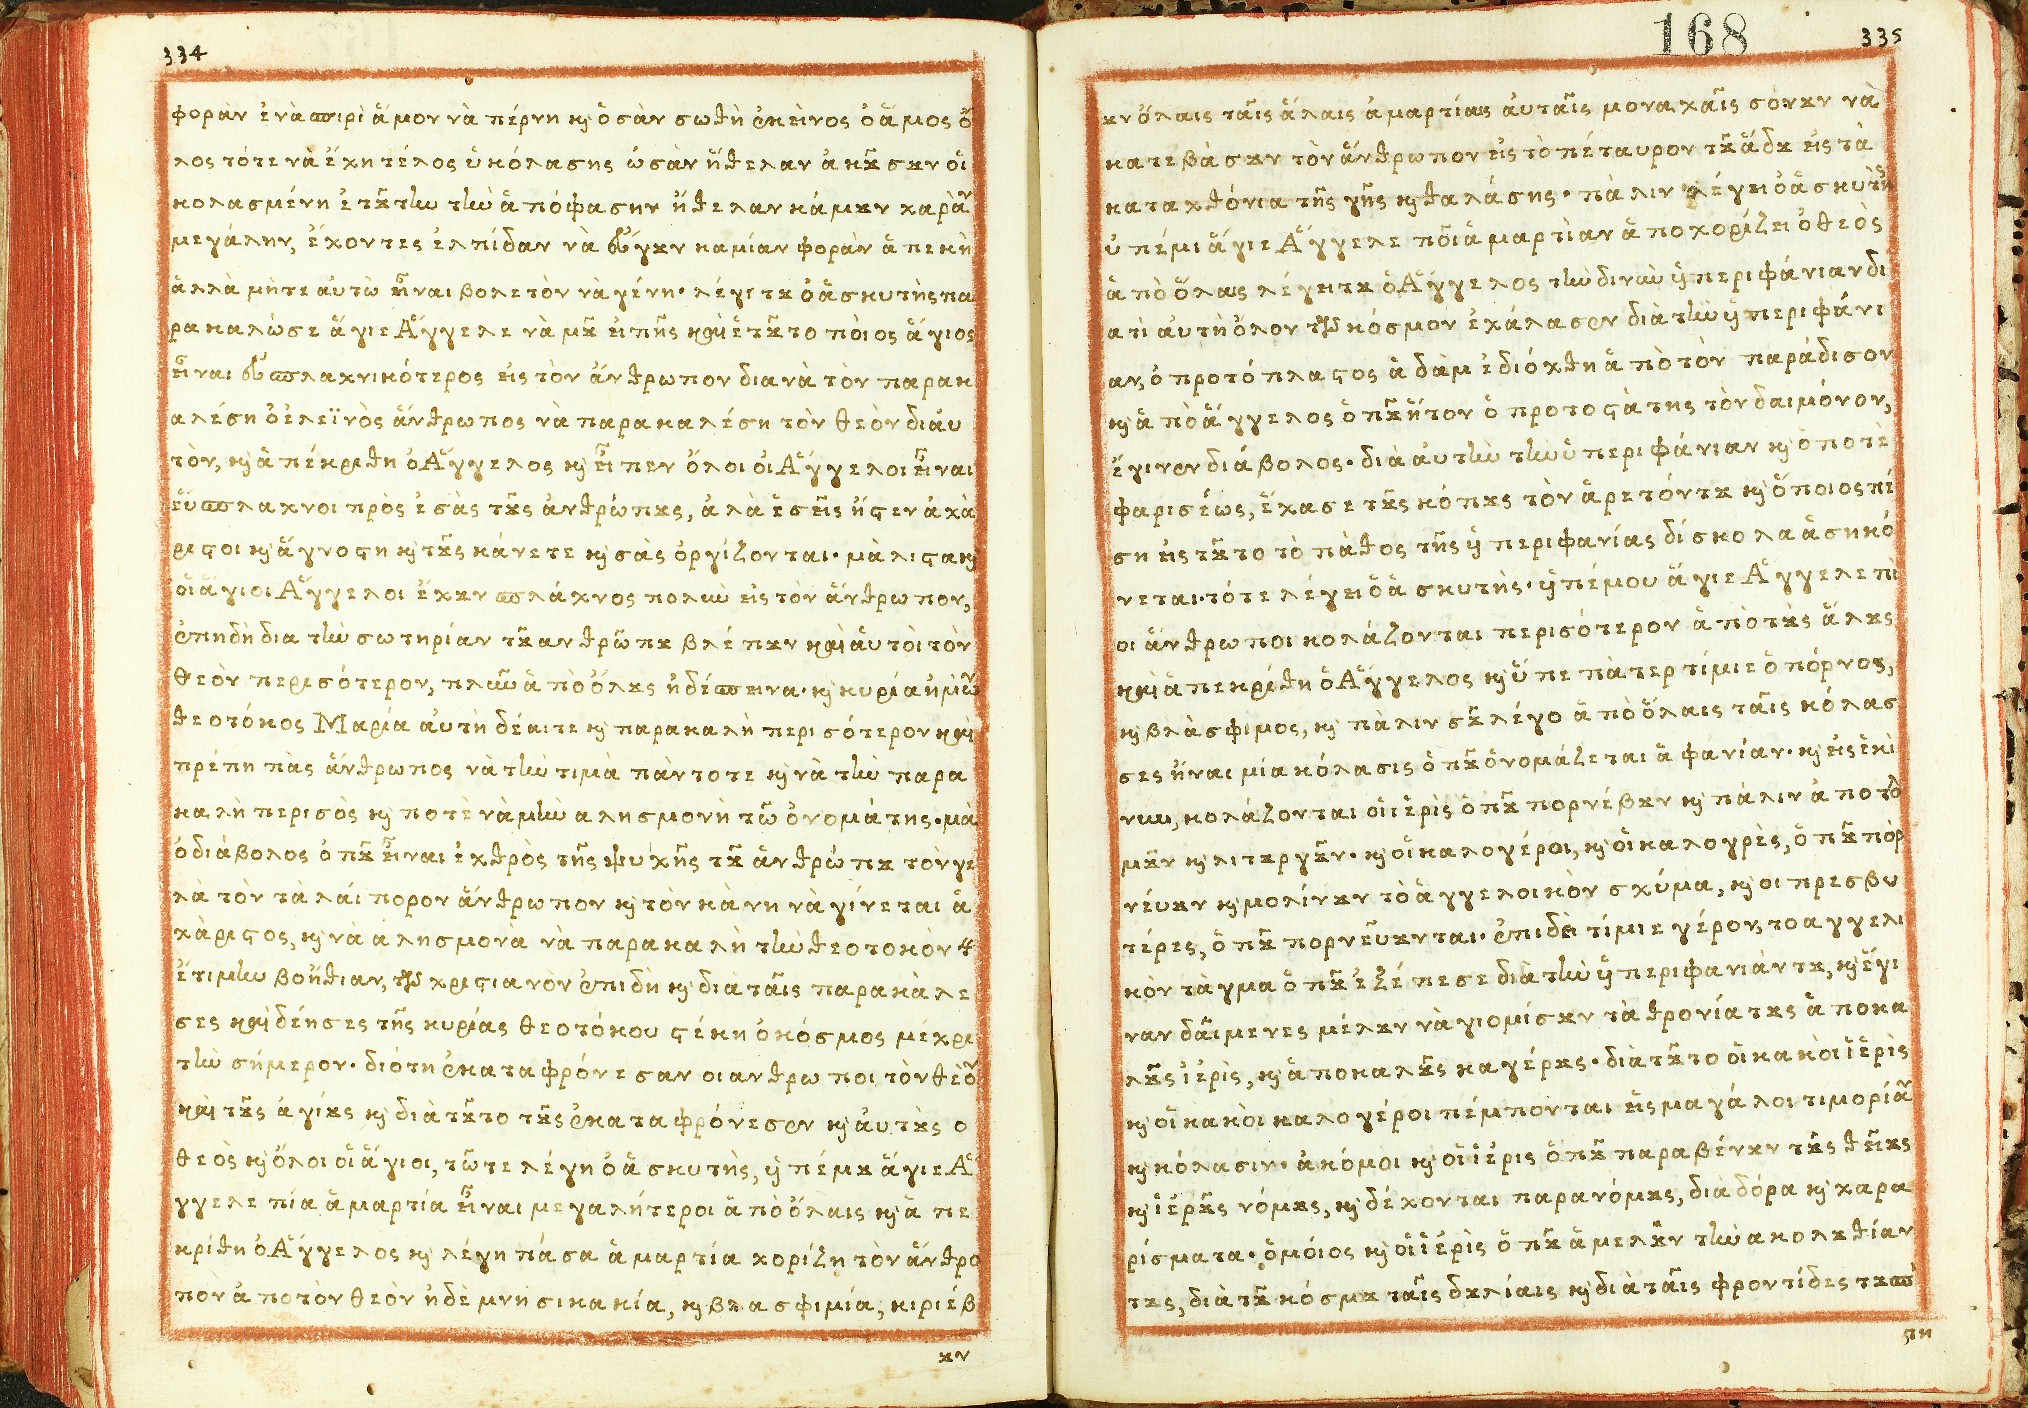 334
φορὰν ἐνὰ σπιρὶ ἄμον νὰ πέρνη κ̀ ὁσὰν σωθῆ ἐκεῖνος ὁ ἄμος ὅ
λος τότε νὰ ἔχη τέλος ὑ κόλασης ὡσὰν ἤθελαν ἀκȣ́σȣν οἱ
κολασμένη ἐτȣ́την τὴν ἀπόφασην ἤθελαν κάμȣν χαρὰν
μεγάλην, ἔχοντες ἐλπίδαν νὰ εὔγȣν καμίαν φορὰν ἀπεκῆ
ἀλλὰ μήτε αὐτὼ εἶναι βολετὸν νὰ γένη· λέγι τȣ ὁ ἀσκυτὴς πα
ρακαλῶσε ἅγιε Ἄγγελε νὰ μȣ εἰπῆς καὶ ἐτȣ̃το πὸιος ἅγιος
εἶναι εὐσπλαχνικότερος εἰς τὸν ἄνθρωπον διανὰ τὸν παρακ
αλέση ὁ ἐλεϊνὸς ἄνθρωπος νὰ παρακαλέση τὸν θεὸν διάυ
τὸν, κ̀ ἀπέκριθη ὁ Ἄγγελος κ̀ εἶπεν ὅλοι οἱ Ἄγγελοι εἶναι
εὔσπλαχνοι πρὸς ἐσὰς τȣ̀ς ἀνθρώπȣς, ἀλὰ ἐσεῖς ἤστεν ἀχὰ
ριστοι κ̀ ἄγνοστη κ̀ τȣ̀ς κάνετε κ̀ σὰς ὀργίζονται· μὰλιστα κ̀
οἱ ἅγιοι Ἄγγελοι ἔχȣν σπλάχνος πολὺν εἰς τὸν ἄνθρωπον,
ἐπηδὴ δια τὴν σωτηρίαν τȣ̃ ανθρώπȣ βλέπȣν καὶ ἀυτὸι τὸν
θεὸν περισότερον, πλὴν ἀπὸ ὅλȣς ἡ δέσπεινα· κ̀ κυρία ἡμῶν
θεοτόκος Μαρία ἀυτὴ δέαιτε κ̀ παρακαλῆ περισότερον καὶ
πρέπη πὰς ἄνθρωπος νὰ τὴν τιμὰ πὰντοτε κ̀ νὰ τὴν παρα
καλῆ περισὸς κ̀ ποτὲ νὰ μὴν αλησμονὴ τῶ ὀνομά της· μὰ
ὁ διάβολος ὁπȣ̃ εἶναι ἐχθρὸς τῆς ψυχῆς τȣ̃ ἀνθρώπȣ τὸν γε
λὰ τὸν τὰλάιπορον ἄνθρωπον κ̀ τὸν κὰνη νὰ γίνεται ἀ
χὰριστος, κ̀ νὰ αλησμονὰ νὰ παρακαλῆ τὴν θεοτοκὸν
ἕτιμην βοήθιαν, τῶν χριστιανὸν ἐπιδὴ κ̀ διὰ ταῖς παρακὰλε
σες καὶ δέησες τῆς κυρίας θεοτόκου στέκη ὁ κόσμος μέχρι
τὴν σήμερον· διότη ἐκαταφρόνεσαν οι ανθρωποι τὸν θεὸν
καὶ τȣ̀ς ἁγίȣς κ̀ διὰ τȣ̃το τȣ̀ς ἐκαταφρόνεσεν κ̀ ἀυτȣ̀ς ο
θεὸς κ̀ ὅλοι οἱ ἅγιοι, τῶτε λέγη ὁ ἀσκυτὴς, ὑπέμȣ ἅγιε Ἄ
γγελε πία ἁμαρτία εἶναι μεγαλήτεροι ἀπὸ ὅλαις κ̀ ἀπε
κρίθη ὁ Ἄγγελος κ̀ λέγη πάσα ἁμαρτία χορίζη τὸν ἄνθρο
πον ἀποτὸν θεὸν ἠδὲ μνησικακία, κ̀ βλασφιμία, κιριέβ
ȣν
168
335
ȣν ὅλαις ταῖς ἄλαις ἁμαρτίαις ἀυταῖς μοναχαῖς σόνȣν νὰ
κατεβὰσȣν τὸν ἄνθρωπον εἰς τὸ πέταυρον τȣ̃ ἅδȣ εἰς τὰ
καταχθόνια τῆς γῆς κ̀ θαλάσης· πὰλιν λέγει ὁ ἀσκυτὴς
ὑπέμι ἅγιε Ἄγγελε πὅιἁμαρτίαν ἀποχορίζει ὁ θεὸς
ἀπὸ ὅλαις λέγη τȣ ὁ Ἄγγελος τὴν δινὴν ὑπεριφάνιαν δι
ατὶ αὐτὴ ὅλον τὸν κόσμον ἐχάλασεν διὰ τὴν ὑπεριφάνι
αν, ὁ προτόπλαστος ἀδὰμ ἐδιόχθη ἀπὸ τὸν παράδισον
κ̀ ἀπὸ ἄγγελος ὁπȣ̃ ἤτον ὁ προτοστὰτης τὸν δαιμόνον,
ἔγινεν διάβολος· διὰ ἀυτὴν τὴν ὑπεριφάνιαν κ̀ ὁ ποτὲ
φαρισέως, ἔχασε τȣ̀ς κόπȣς τὸν ἀρετόν τȣ κ̀ ὅποιος πέ
ση εἰς τȣ̃το τὸ πὰθος τῆς ὑπεριφανίας δίσκολα ἀσηκό
νεται· τότε λέγει ὁ ἀσκυτής· ὑπέμου ἅγιε Ἄγγελε πὶ
οι ἄνθρωποι κολάζονται περισότερον ἀπὸ τȣ̀ς ἄλȣς
καὶ ἀπεκρίθη ὁ Ἄγγελος κ̀ ὕπε πὰτερ τίμιε ὁ πόρνος,
κ̀ βλὰσφιμος, κ̀ πὰλιν σȣ̃ λέγο ἀπὸ ὅλαις ταῖς κόλασ
σες ἤναι μία κόλασις ὁπȣ̃ ὀνομάζεται ἀφανίαν· κ̀ εἰς ἐκὶ
νην, κολάζονται οἱ ἱερὶς ὁπȣ̃ πορνέβȣν κ̀ πάλιν ἀποτὸ
μȣ̃ν κ̀ λιτȣργȣ̃ν· κ̀ οἱ καλογέροι, κ̀ οἱ καλογρὲς, ὁπȣ̃ πὸρ
νέυȣν κ̀ μολίνȣν τὸ ἀγγελοικὸν σχύμα, κ̀ οι πρεσβυ
τέρες, ὁπȣ̃ πορνεύȣνται· ἐπιδὲι τίμιε γέρον, το αγγελι
κὸν τὰγμα ὁπȣ̃ ἐξέπεσε διὰ τὴν ὑπεριφανιὰν τȣ, κ̀ ἔγι
ναν δαίμενες μέλȣν νὰ γιομίσȣν τὰ θρονία τȣς ἀποκα
λȣ̀ς ἱερὶς, κ̀ ἀποκαλȣ̀ς καγέρȣς· διὰ τȣ̃το οἱ κακὸι ἱερὶς
κ̀ οἱ κακὸι καλογέροι πέμπονται εἰς μαγάλοι τιμορίαν
κ̀ κόλασιν· ἀκόμοι κ̀ οἱ ἱέρις ὁπȣ̃ παραβένȣν τȣ̀ς θεῖȣς
κ̀ ἱέρȣ̀ς νόμȣς, κ̀ δέχονται παρανόμȣς, διὰ δόρα κ̀ χαρα
ρίσματα· ὁμόιος κ̀ οἱ ἱέρὶς ὁπȣ̃ ἀμελȣ̃ν τὴν ακολȣθίαν
τȣς, διὰ τȣ̃ κόσμȣ ταῖς δȣλίαις κ̀ διὰ ταῖς φροντίδες τȣ σπ
πη